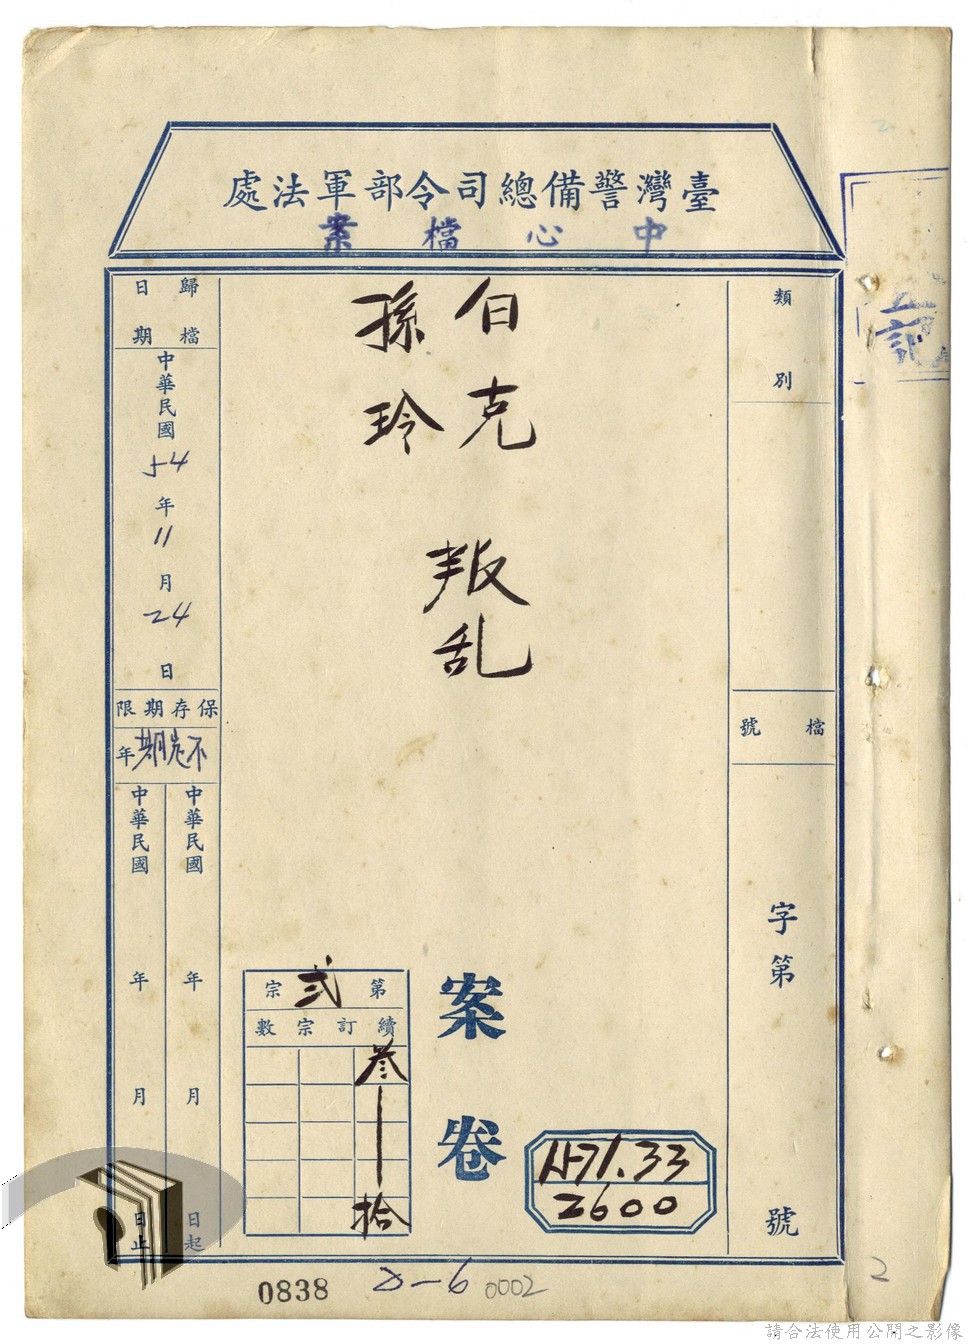 臺灣警備總司令部軍法處
中心檔案
類別
檔號
字第
號
白克
孫玲
叛乱
案卷
1571.33
2600
第弍宗
續訂宗數
叁
拾
歸檔
日期
中華民國54年11月24日
保存期限
不定期年
中華民國 年 月 日起
中華民國 年 月 日止
0838
0002
2
請合法使用公開之影像